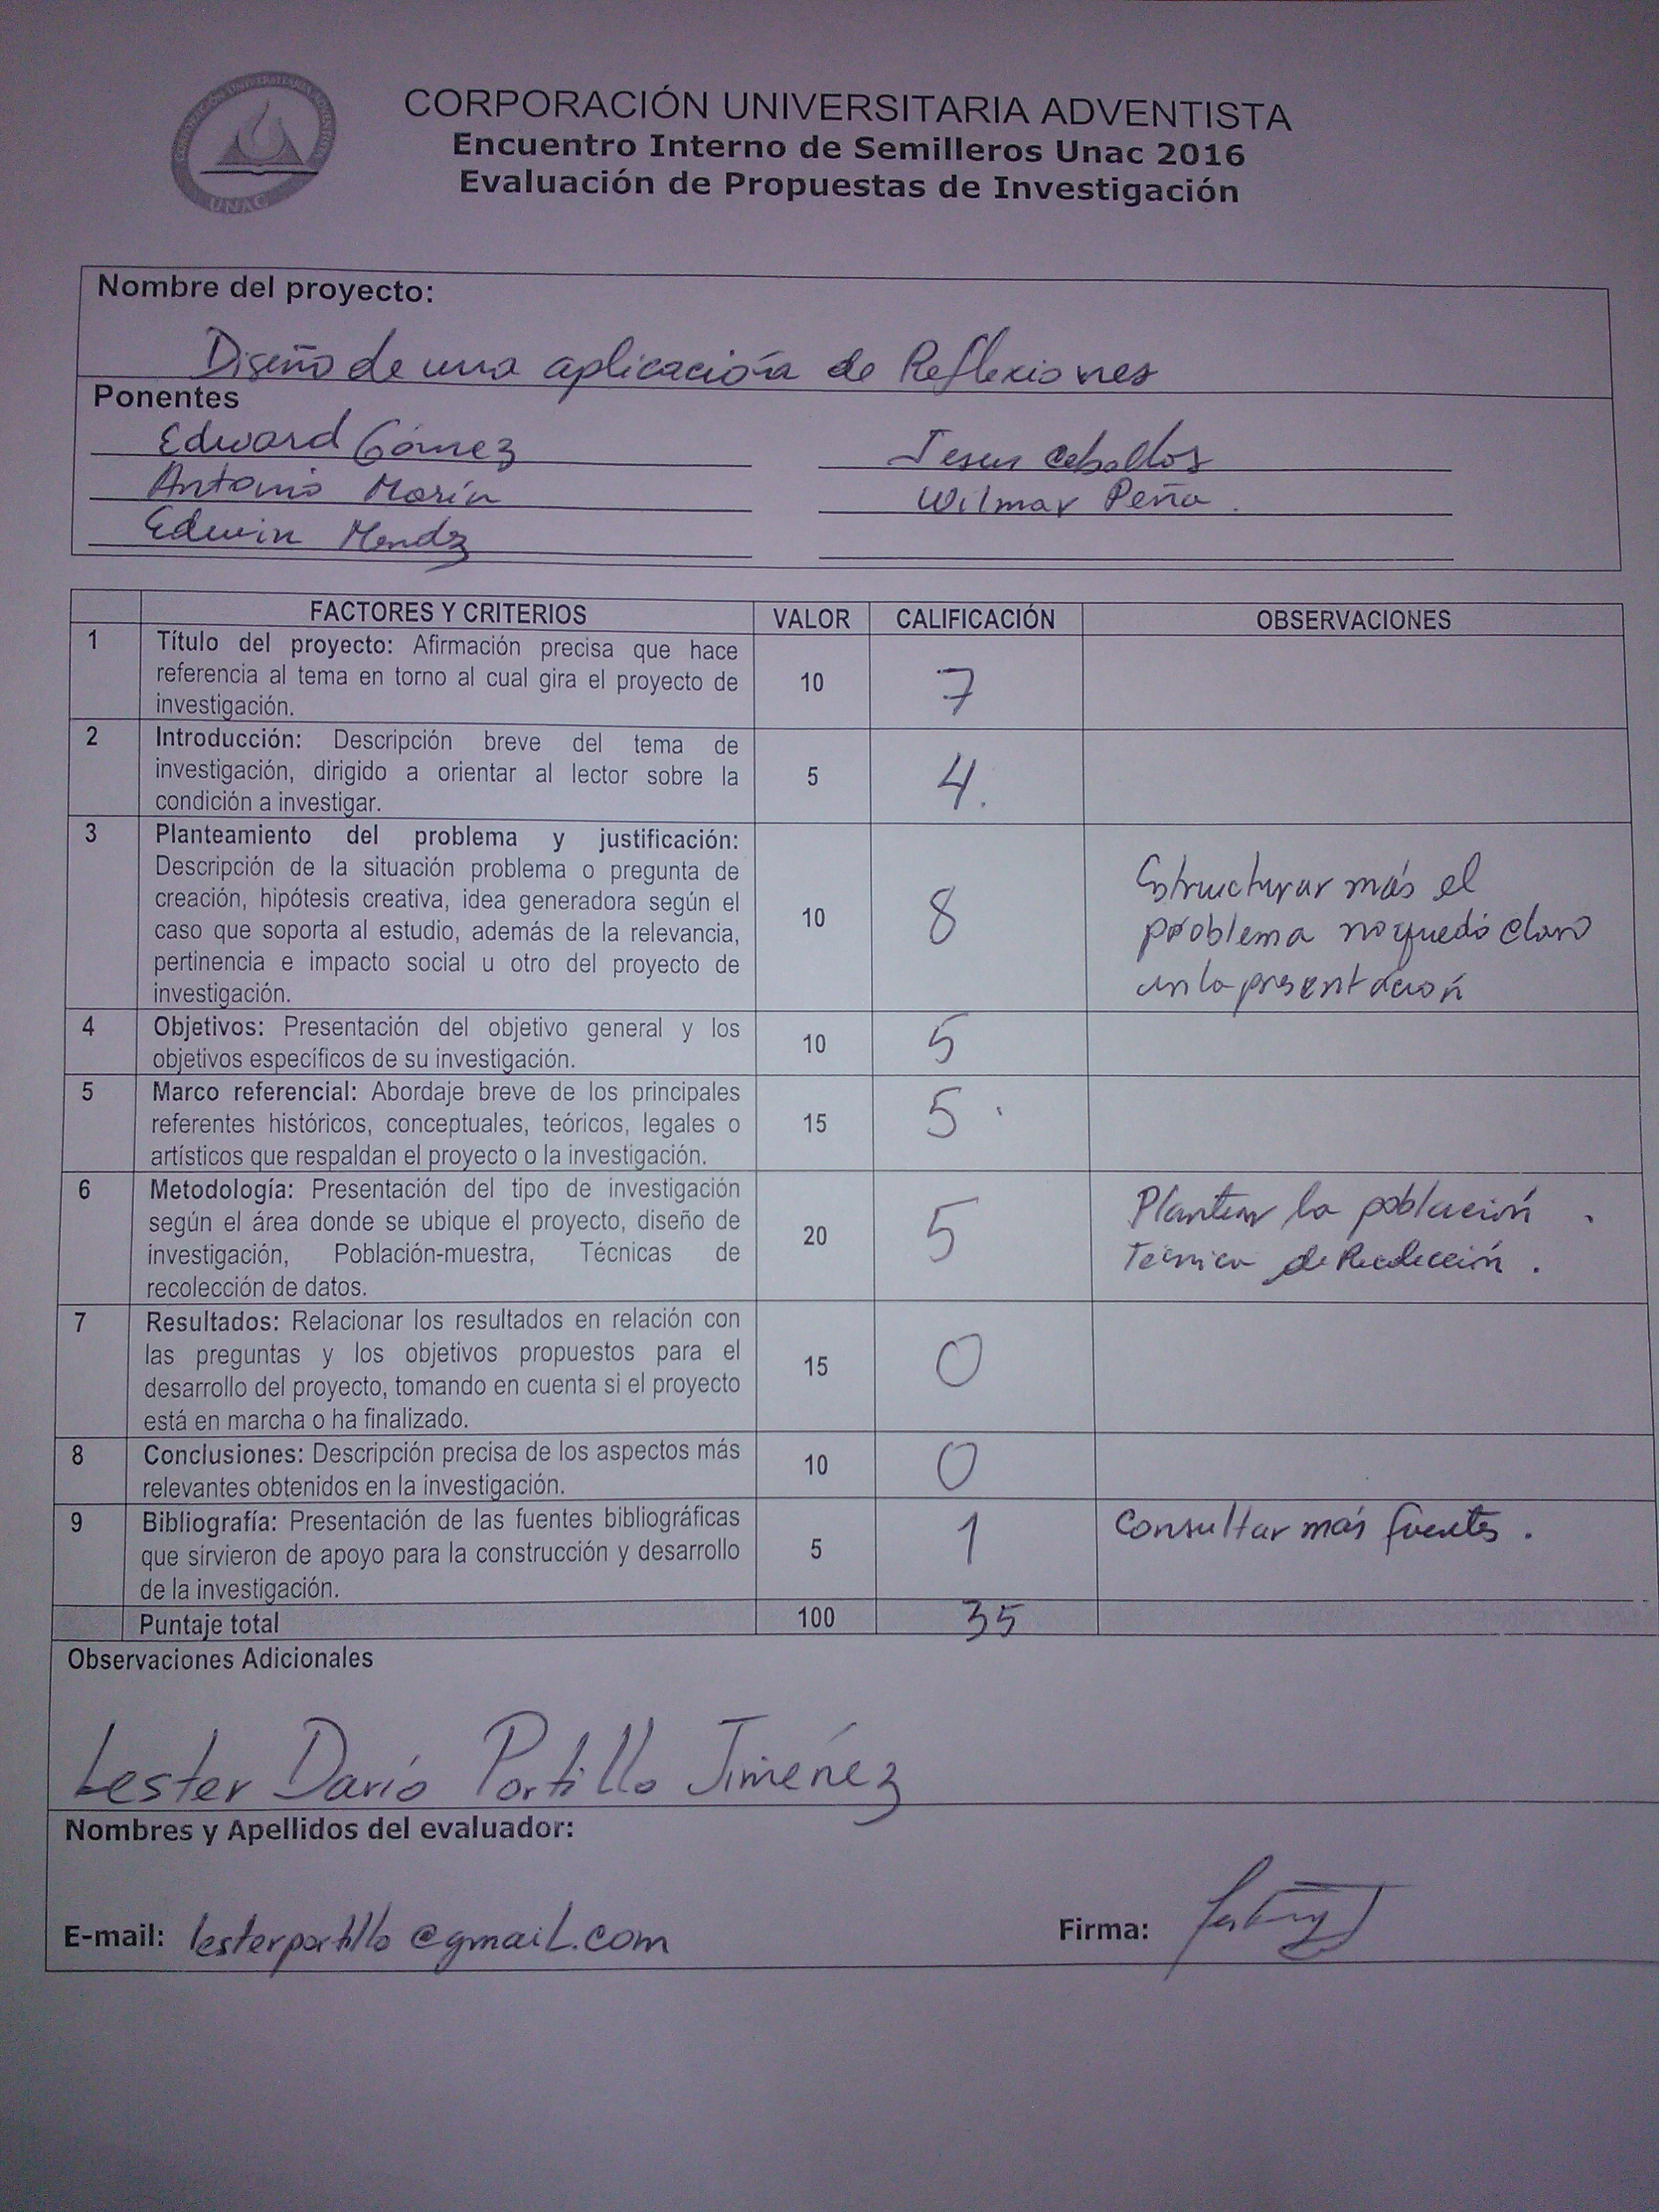 CORPORACIÓN UNIVERSITARIA ADVENTISTA
UNAC
CORPORACIÓN UNIVERSITARIA ADVENTISTA
Encuentro Interno de Semilleros Unac 2016
Evaluación de Propuestas de Investigación
Nombre del proyecto:
Diseño de una aplicación de Reflexiones
Ponentes
Edward Gómez Jesus Ceballos
Antonio Marín Wilmar Peña.
Edwin Mendz
FACTORES Y CRITERIOS VALOR CALIFICACIÓN OBSERVACIONES
1 Título del proyecto: Afirmación precisa que hace
referencia al tema en torno al cual gira el proyecto de 10 7
investigación.
2 Introducción: Descripción breve del tema de
investigación, dirigido a orientar al lector sobre la 5 4.
condición a investigar.
3 Planteamiento del problema y justificación:
Descripción de la situación problema o pregunta de Estructurar más el
creación, hipótesis creativa, idea generadora según el 10 8
caso que soporta al estudio, además de la relevancia, problema no quedó claro
pertinencia e impacto social u otro del proyecto de en la presentación
investigación.
4 Objetivos: Presentación del objetivo general y los 10 5
objetivos específicos de su investigación.
5 Marco referencial: Abordaje breve de los principales
referentes históricos, conceptuales, teóricos, legales o 15 5
artísticos que respaldan el proyecto o la investigación.
6 Metodología: Presentación del tipo de investigación Plantear la población.
según el área donde se ubique el proyecto, diseño de 20 5
investigación, Población-muestra, Técnicas de Técnica de Recolección.
recolección de datos.
7 Resultados: Relacionar los resultados en relación con
las preguntas y los objetivos propuestos para el 15 0
desarrollo del proyecto, tomando en cuenta si el proyecto
está en marcha o ha finalizado.
8 Conclusiones: Descripción precisa de los aspectos más 10 0
relevantes obtenidos en la investigación.
9 Bibliografía: Presentación de las fuentes bibliográficas Consultar más fuentes.
que sirvieron de apoyo para la construcción y desarrollo 5 1
de la investigación.
Puntaje total 100 35
Observaciones Adicionales
Lester Darío Portillo Jiménez
Nombres y Apellidos del evaluador:
E-mail: lesterportillo@gmail.com Firma: